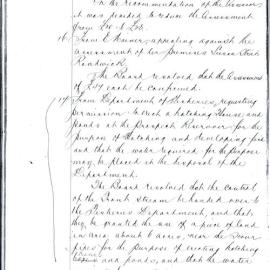 On the recommendation of the Assessor
it was decided to reduce the Assessment
from
16. From E. Warner appealing against the
assessment of her premises Susan Street
Randwick.
The Board resolved that the Assessments
of £44 each be confirmed.
17. From Department of Fisheries, requesting
permission to erect a hatching House and
ponds at the Prospect Reservoir for the
purpose of Hatching and developing fish
and that the water required for the purpose
may be placed at the disposal of the
Department.
The Board resolved that the control
of the Trout stream be handed over to
the Fisheries Department, and that
they be granted the use of a piece of land
in area about 6 acres, near the Four
pipes for the purpose of erecting hatching
house and ponds, and that the water